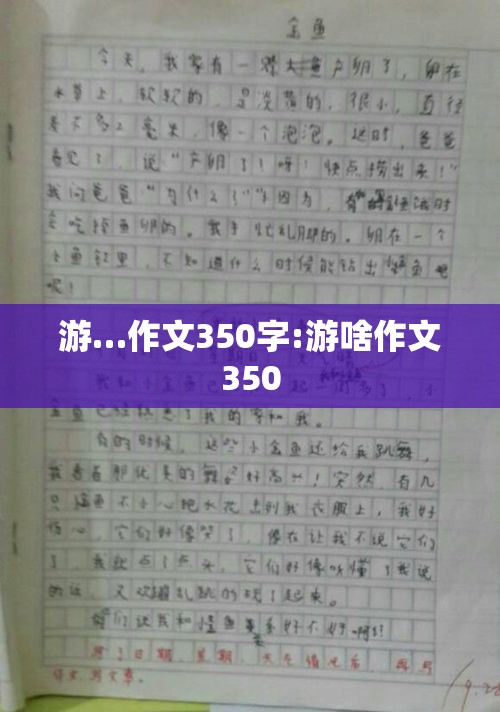 金鱼
今天,我家有一条大金鱼产卵了,卵在
水草上,软软的,是淡黄的,很小,直径
差不多2毫米,像一个泡泡。这时,爸爸
看见了,说“产卵了!呀!快点捞出来!”
我问爸爸“为什么?”“因为,有的金鱼饿时
会吃掉鱼卵的。我手忙乱脚的。卵在一个
小鱼缸里,不知道什么时候能钻出小鱼
呢!
游...作文350字:游啥作文
350
金鱼已经熟悉了我的家和我。
有的时候,这些小金鱼还给我跳舞,
我看着那优美的舞,好高兴!突然,有几
只金鱼不小心把水花上到我衣服上,我好
伤心,它们好像哭了,像在让我不说它们
了,我就点了点头,它们好像听懂了我说
的话,又欢蹦乱跳的玩了起来。
你们说我和金鱼关系好不好啊?